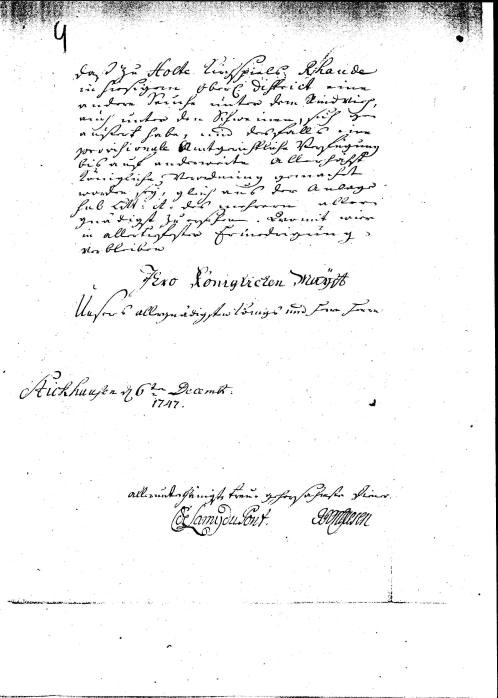 4
daß zu Holte Kirchspiels Rhaude
in hiesigem Ober District eine
andere Seuche unter dem Rindvieh,
auch unter den Schweinen, sich ge
äußert habe, und desfalls eine
provisionale Amtgerichtliche Verfügung
bis auf anderweite Allerhöchst
Königliche Verordnung gemacht
worden sey, gleich aus der Anlage
sub Litt: A: des mehrern aller
gnädigst zu ersehen. Womit wir
in allertiefster Erniedrigung
verbleiben
Ihro Königlichen Mayst
Unsers allergnädigsten Königs und Herrn Herrn
Stickhausen d 6ten Decembr:
1747.
allerunterthänigst treu gehorsamste Diener